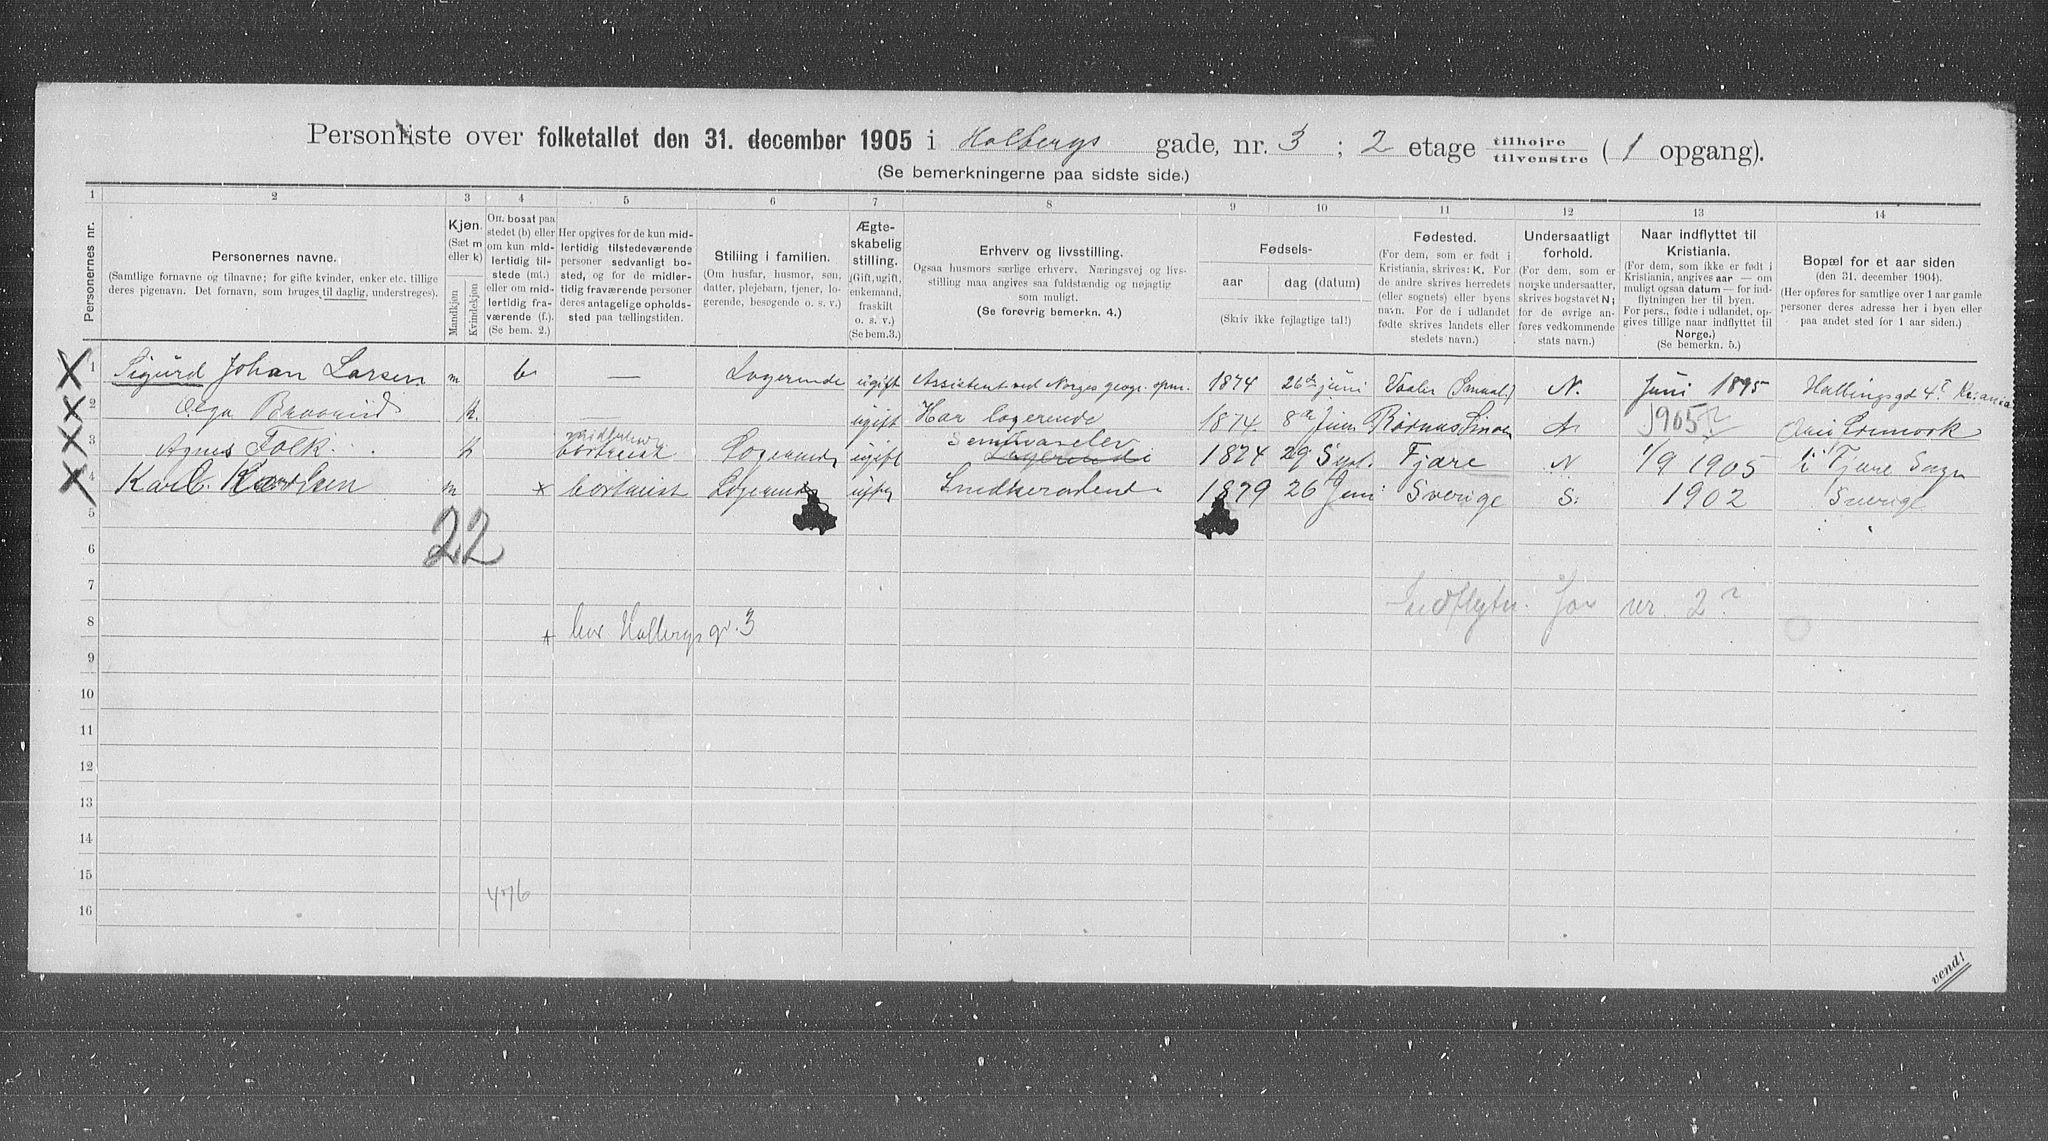 Personliste over folketallet den 31. december 1905 i Holbergs gade, nr. 3 ; 2 etage tilhøjre tilvenstre ( 1 opgang).
(Se bemerkningerne paa sidste side.)
1 2 3 4 5 6 7 8 9 10 11 12 13 14
Personernes nr.
Personernes navne.
(Samtlige fornavne og tilnavne; for gifte kvinder, enker etc. tillige
deres pigenavn. Det fornavn, som bruges til daglig, understreges).
Kjøn.
(Sæt m
eller k)
Mandkjøn
Kvindekjøn
Om bosat paa
stedet (b) eller
om kun mid-
lertidig til-
stede (mt.)
eller om mid-
lertidig fra-
værende (f.).
(Se bem. 2.)
Her opgives for de kun mid-
lertidig tilstedeværende
personer sedvanligt bo-
sted, og for de midler-
tidig fraværende personer
deres antagelige opholds-
sted paa tællingstiden.
Stilling i familien.
(Om husfar, husmor, søn,
datter, plejebarn, tjener, lo-
gerende, besøgende o. s. v.)
Ægte-
skabelig
stilling.
(Gift, ugift,
enkemand,
fraskilt
o. s. v.)
(Se bem.3.)
Erhverv og livsstilling.
Ogsaa husmors særlige erhverv. Næringsvej og livs-
stilling maa angives saa fuldstændig og nøjagtig
som muligt.
(Se forøvrig bemerkn. 4.)
Fødsels-
aar dag (datum)
(Skriv ikke fejlagtige tal!)
Fødested.
(For dem, som er født i
Kristiania, skrives: K. For
de andre skrives herredets
(eller sognets) eller byens
navn. For de i udlandet
fødte skrives landets eller
stedets navn.)
Undersaatligt
forhold.
(For dem, som er
norske undersaatter,
skrives bogstavet N;
for de øvrige an-
føres vedkommende
stats navn.)
Naar indflyttet til
Kristiania.
(For dem, som ikke er født i
Kristiania, angives aar — om
muligt ogsaa datum — for ind-
flytningen her til byen.
For pers., fødte i udlandet, op-
gives tillige naar indflyttet til
Norge.)
(Se bemerkn. 5.)
Bopæl for et aar siden
(den 31. december 1904).
(Her opføres for samtlige over 1 aar gamle
personer deres adresse her i byen eller
paa andet sted for 1 aar siden.)
1 Sigurd Johan Larsen m b — Logerende ugift Assistent ved Norges geogr. opm. 1874 26de juni Vaaler (Smaal.) N. Juni 1895 Kr.ania
2 Olga k. — ugift Har logerende 1874. 8de Juni N 1905?
3 Agnes Folk. k Logerende ugift Seminarelev Logerende 1874 29 Sept. Fjære N 1/9 1905 Fjære Sogn
4 Karl Karlsen m x bortreist Logerende ugift Snedkerarbeid 1879 26 Juni Sverige S. 1902 Sverige
5
22
6
7 Indflytn. for nr. 2?
8 x bor Holbergs gd. 3
9
10
11
12
13
14
15
476
16
vend!